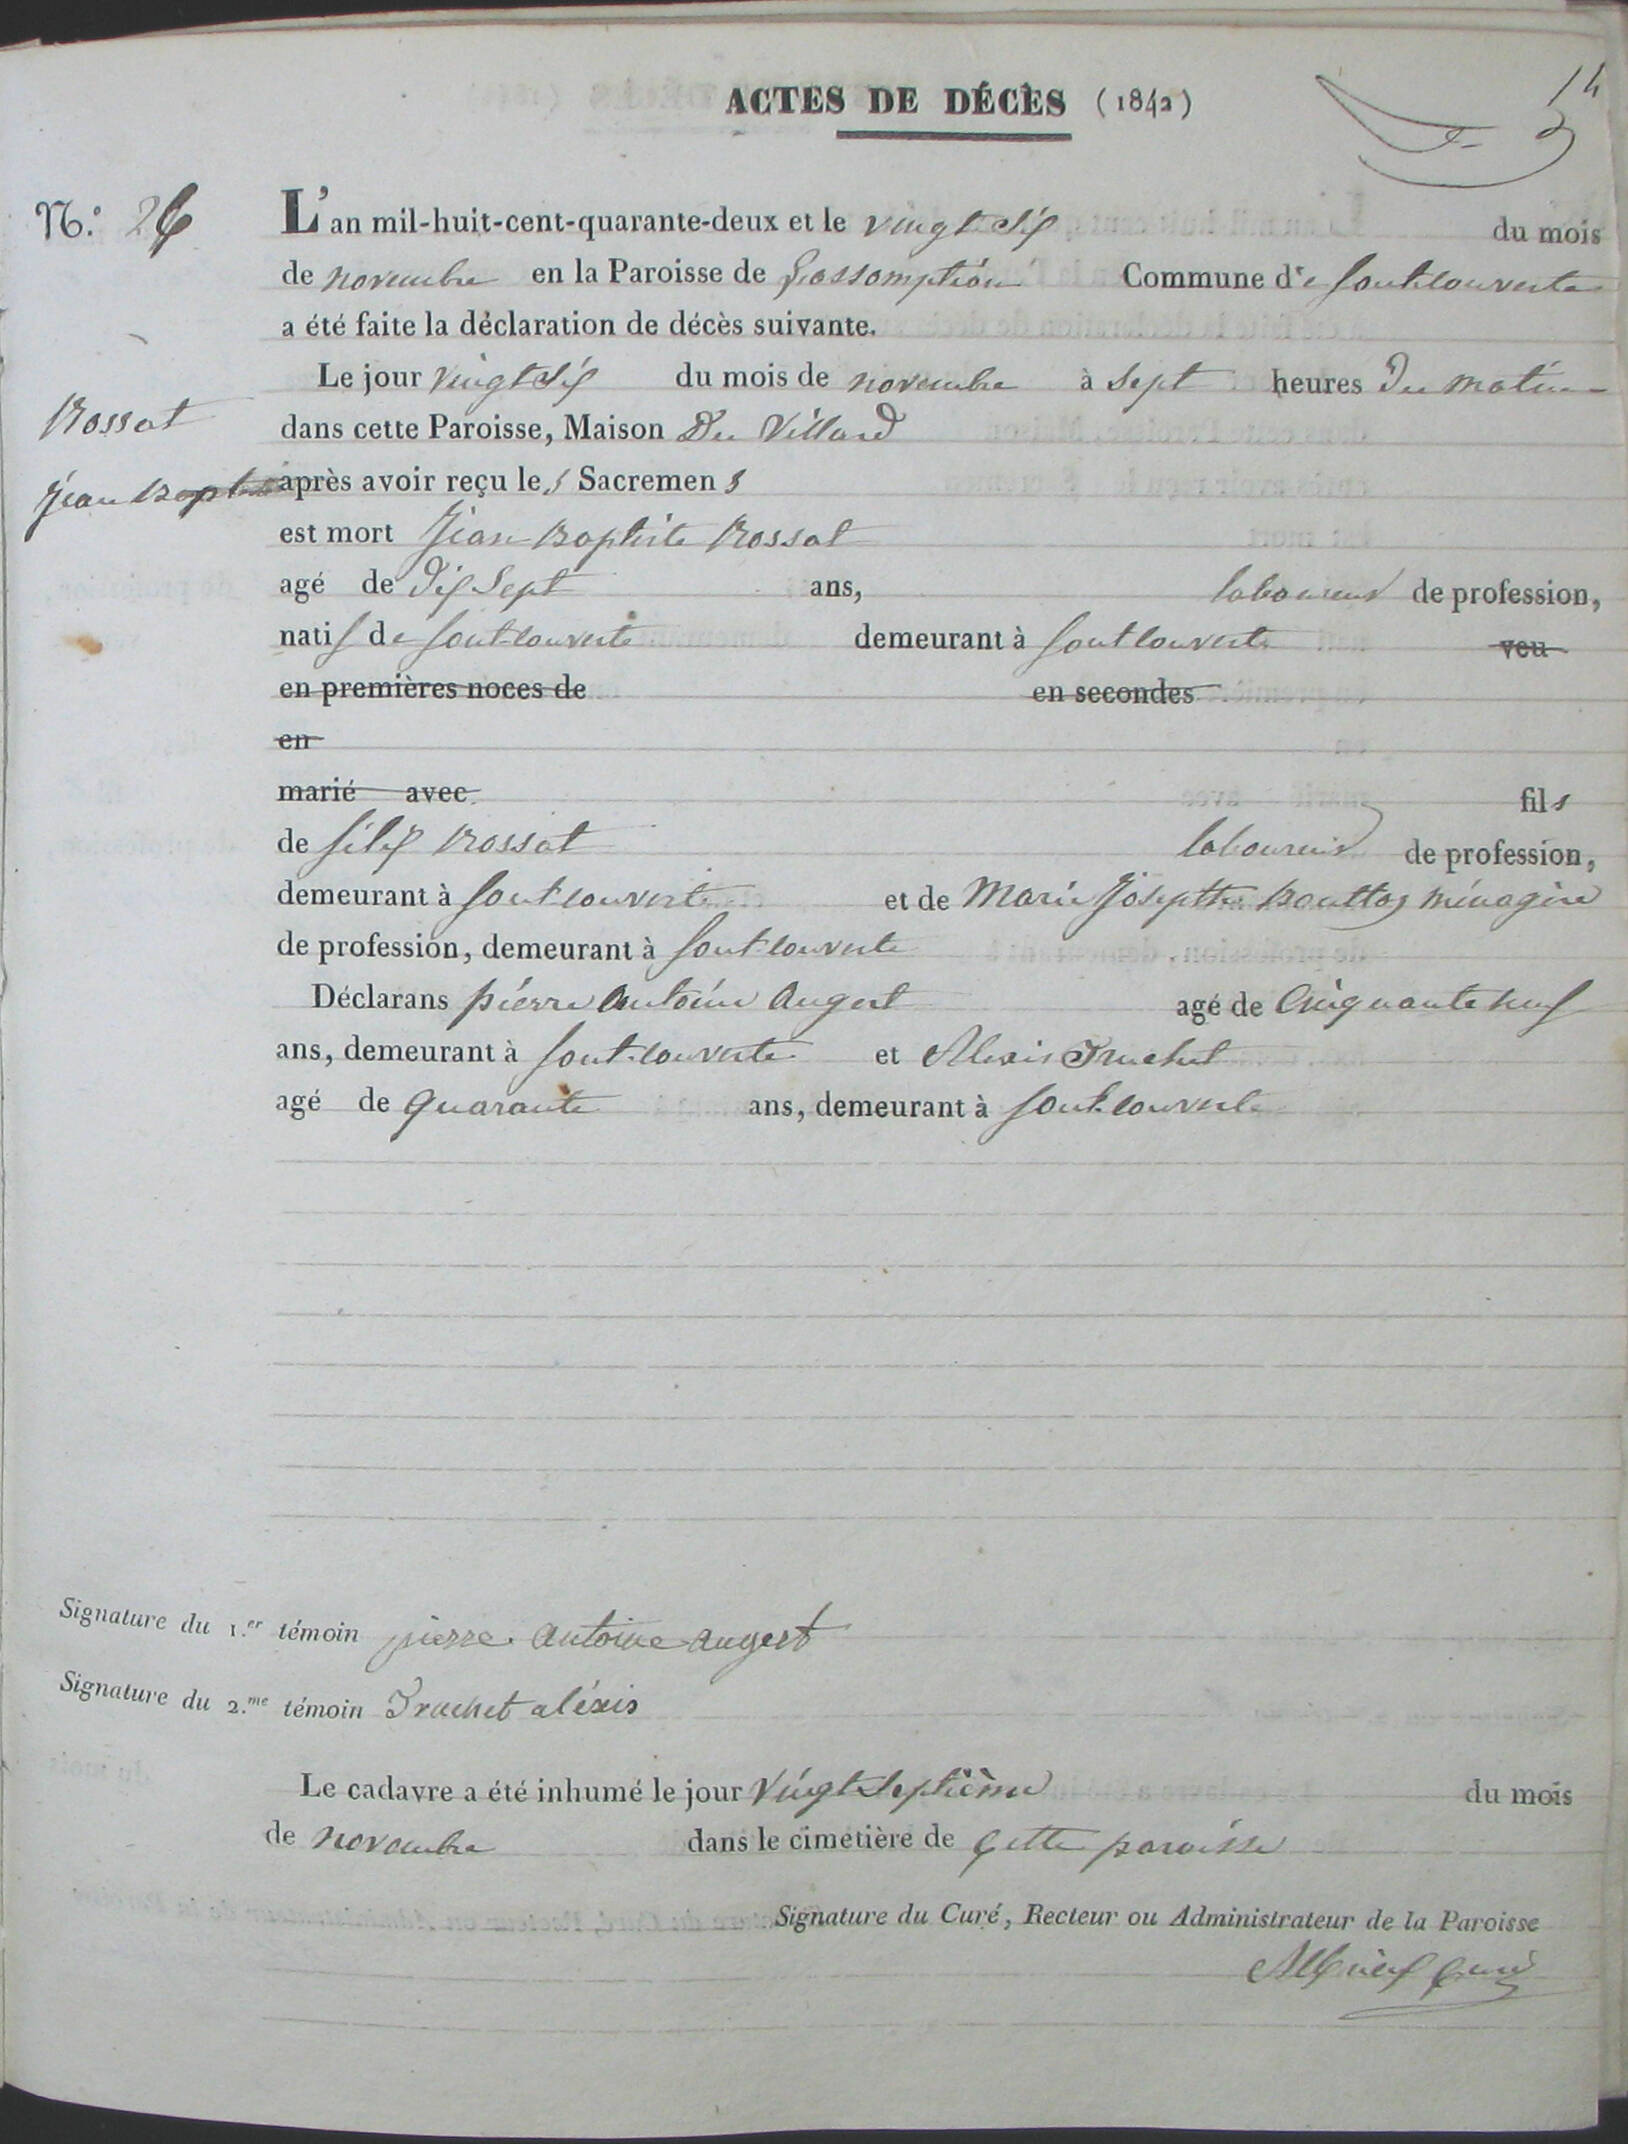 ACTES DE DÉCÈS (1842)
14
N.º 26
L'an mil-huit-cent-quarante-deux et le vingt six du mois
de novembre en la Paroisse de Lassomption Commune de fontcouverte
a été faite la déclaration de décès suivante.
Le jour vingt six du mois de novembre à sept heures du matin
Rossat
dans cette Paroisse, Maison Du Villard
Jean Baptiste
après avoir reçu les Sacremens
est mort Jean Baptiste Rossat
agé de dix sept ans, laboureur de profession,
natif de fontcouverte demeurant à fontcouverte veu
en premières noces de en secondes
en
marié avec fils
de félix Rossat laboureur de profession,
demeurant à fontcouverte et de Marie Josephte Bouttaz ménagère
de profession, demeurant à fontcouverte
Déclarans pierre antoine Augert agé de Cinquante neuf
ans, demeurant à fontcouverte et Alexis Truchet
agé de quarante ans, demeurant à fontcouverte
Signature du 1.er témoin pierre antoine augert
Signature du 2.me témoin Truchet aléxis
Le cadavre a été inhumé le jour vingt septième du mois
de novembre dans le cimetière de cette paroisse
Signature du Curé, Recteur ou Administrateur de la Paroisse
curé